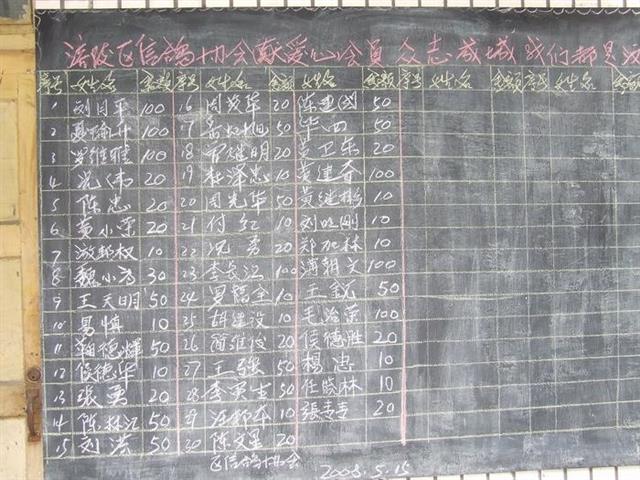 涪陵区信鸽协会献爱心会员 众志成城 我们都是汶
序号 姓名 金额 序号 姓名 金额 姓名 金额 序号 姓名 金额 序号 姓名 金额
1 刘月平 100 16 周茂华 20 陈建国 50
2 100 17 50 华四 50
3 罗维雅 100 18 曾继明 20 卫东 20
4 况伟 20 19 杜泽忠 10 黄建春 100
5 陈忠 20 20 周光华 50 黄继鹏 10
6 黄小荣 20 21 付红 10 刘晓刚 10
7 敖邦权 10 22 况勇 20 郑加林 10
8 魏小涛 30 23 李长江 100 潘朝文 100
9 王天明 50 24 罗福全 10 王锐 50
10 易慎 10 25 胡建设 10 毛治宗 100
11 德辉 50 26 蔺维俊 20 侯德胜 20
12 侯德华 10 27 王强 50 杨忠 10
13 张勇 20 28 李军生 50 任晓林 10
14 陈林江 50 29 10 張 20
15 刘洪 50 30 陈文星 20
区信鸽协会 2008.5.15